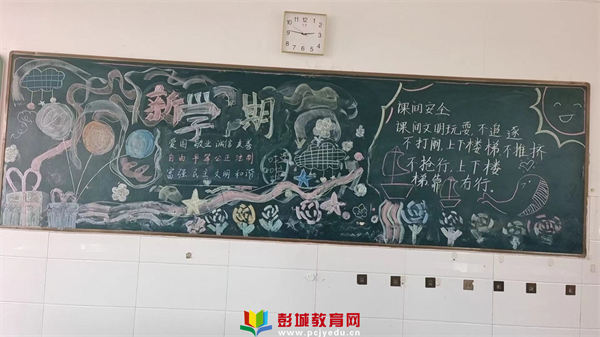 新学期
爱国 敬业 诚信 友善
自由 平等 公正 法制
富强 民主 文明 和谐
课间安全
课间文明玩耍,不追逐
不打闹,上下楼梯不推挤
不抢行,上下楼
梯靠右行。
彭城教育网
www.pcjyedu.cn